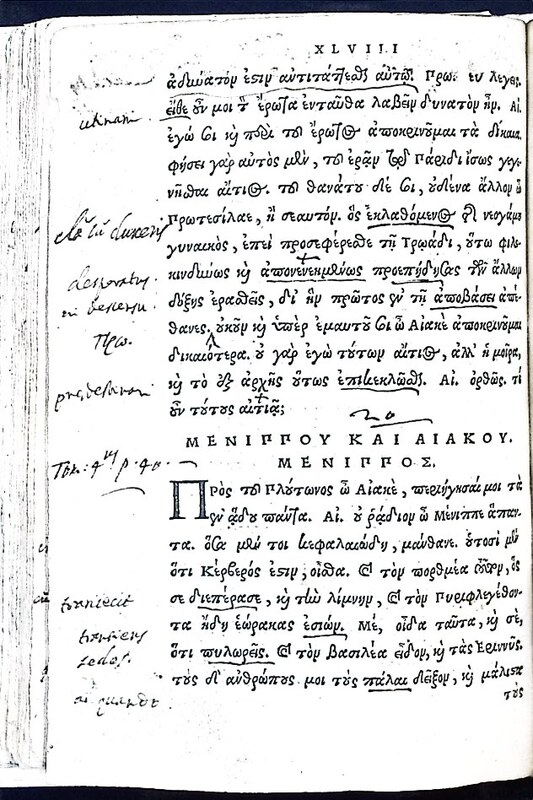 XLVIII
ἀδύνατόν ἐστιν ἀντιτάττεσθαι αὐτῷ. Πρω. εὖ λέγεις.
εἴθε οὖν μοι τὸν ἔρωτα ἐνταῦθα λαβεῖν δυνατὸν ἦν. Αἰ.
utinam
ἐγώ σοι καὶ περὶ τοῦ ἔρωτος ἀποκρινοῦμαι τὰ δίκαια.
φήσει γὰρ αὐτὸς μὲν, τοῦ ἐρᾶν τῷ Πάριδι ἴσως γεγε
νῆσθαι αἴτιος. τοῦ θανάτου δέ σοι, οὐδένα ἄλλον ὦ
Πρωτεσίλαε, ἢ σεαυτόν. ὃς ἐκλαθόμενος τῆς νεογάμου
γυναικὸς, ἐπεὶ προσεφέρεσθε τῇ Τρωάδι, οὕτω φιλο
κινδύνως καὶ ἀπονενοημένως προεπήδησας τῶν ἄλλων
δόξης ἐρασθεὶς, δι' ἣν πρῶτος ἐν τῇ ἀποβάσει ἀπέ
θανες. οὐκοῦν καὶ ὑπὲρ ἐμαυτοῦ σοι ὦ Αἰακὲ ἀποκρινοῦμαι
Πρω.
δικαιότερα. οὐ γὰρ ἐγὼ τούτων αἴτιος, ἀλλ' ἡ μοῖρα,
καὶ τὸ ἐξ ἀρχῆς οὕτως ἐπικεκλῶσθαι. Αἰ. ὀρθῶς. τί
οὖν τούτους αἰτιᾷ;
20
ΜΕΝΙΠΠΟΥ ΚΑΙ ΑΙΑΚΟΥ.
ΜΕΝΙΠΠΟΣ.
Πρὸς τοῦ Πλούτωνος ὦ Αἰακὲ, περιήγησαί μοι τὰ
ἐν ᾅδου πάντα. Αἰ. οὐ ῥᾴδιον ὦ Μένιππε ἅπαν-
τα. ὅσα μέν τοι κεφαλαιώδη, μάνθανε. οὑτοσὶ μὲν
ὅτι Κέρβερός ἐστιν, οἶσθα. καὶ τὸν πορθμέα τοῦτον, ὅς
σε διεπέρασε, καὶ τὴν λίμνην, καὶ τὸν Πυριφλεγέθον-
τα ἤδη ἑώρακας ἐσιών. Με, οἶδα ταῦτα, καὶ σὲ,
ὅτι πυλωρεῖς. καὶ τὸν βασιλέα εἶδον, καὶ τὰς Ἐριννῦς.
τοὺς δ' ἀνθρώπους μοι τοὺς πάλαι δεῖξον, καὶ μάλιστα
τοὺς